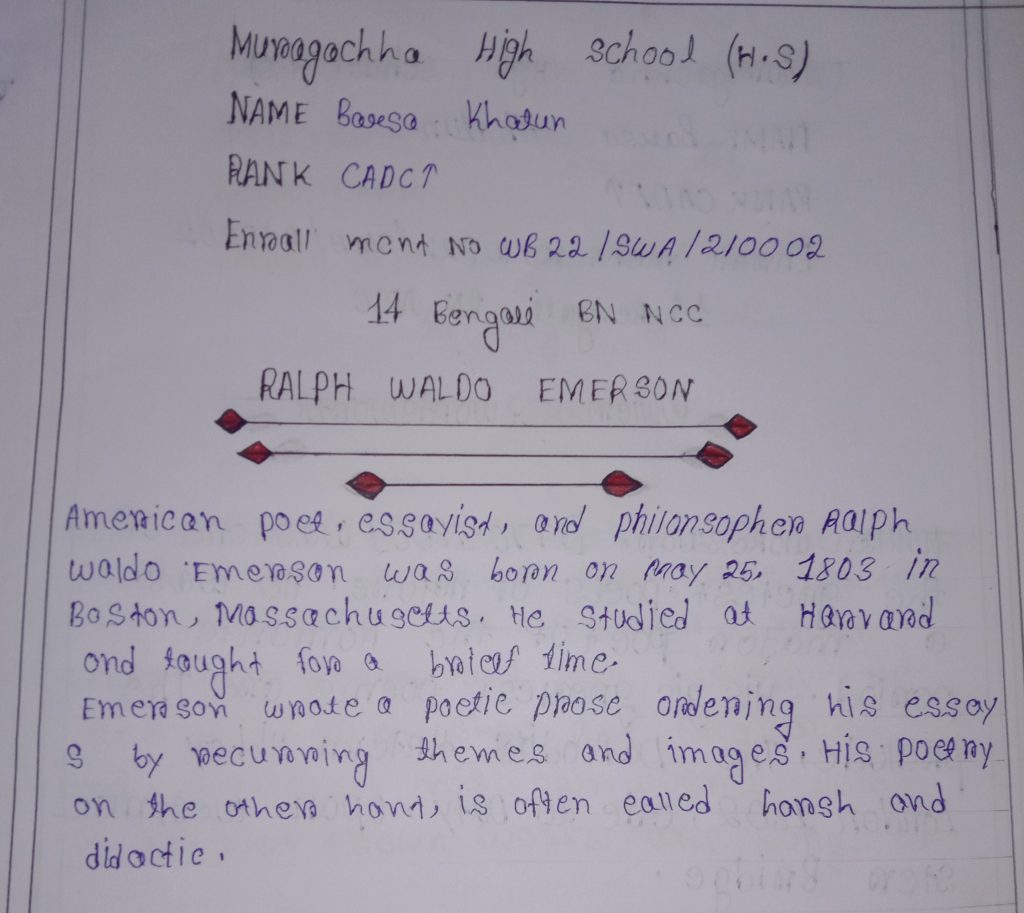 Muragachha High School (H.S)
NAME Baresa Khatun
RANK CADCT
Enroall ment No WB 22 / SWA / 210002
14 Bengali BN NCC
RALPH WALDO EMERSON
American poet, essayist, and philonsopher Ralph
waldo Emerson was born on May 25, 1803 in
Boston, Massachusetts. He studied at Harvard
and taught for a brief time.
Emerson wrote a poetic prose ordering his essay
s by recurring themes and images. His poetry
on the other hant, is often called harsh and
didactic.